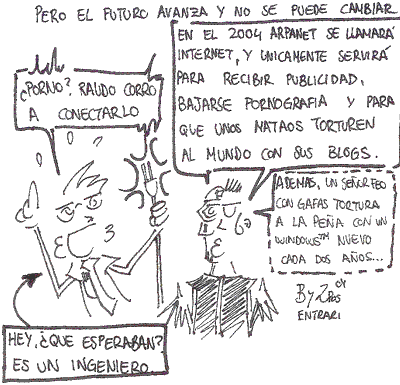 PERO EL FUTURO AVANZA Y NO SE PUEDE CAMBIAR
EN EL 2004 ARPANET SE LLAMARÁ
INTERNET, Y UNICAMENTE SERVIRÁ
PARA RECIBIR PUBLICIDAD,
BAJARSE PORNOGRAFIA Y PARA
QUE UNOS NATAOS TORTUREN
AL MUNDO CON SUS BLOGS.
¿PORNO?, RAUDO CORRO
A CONECTARLO
ADEMAS, UN SEÑOR FEO
CON GAFAS TORTURA
A LA PEÑA CON UN
WINDOWS™ NUEVO
CADA DOS AÑOS...
HEY, ¿QUE ESPERABAN?
ES UN INGENIERO
By
04
ENTRARI